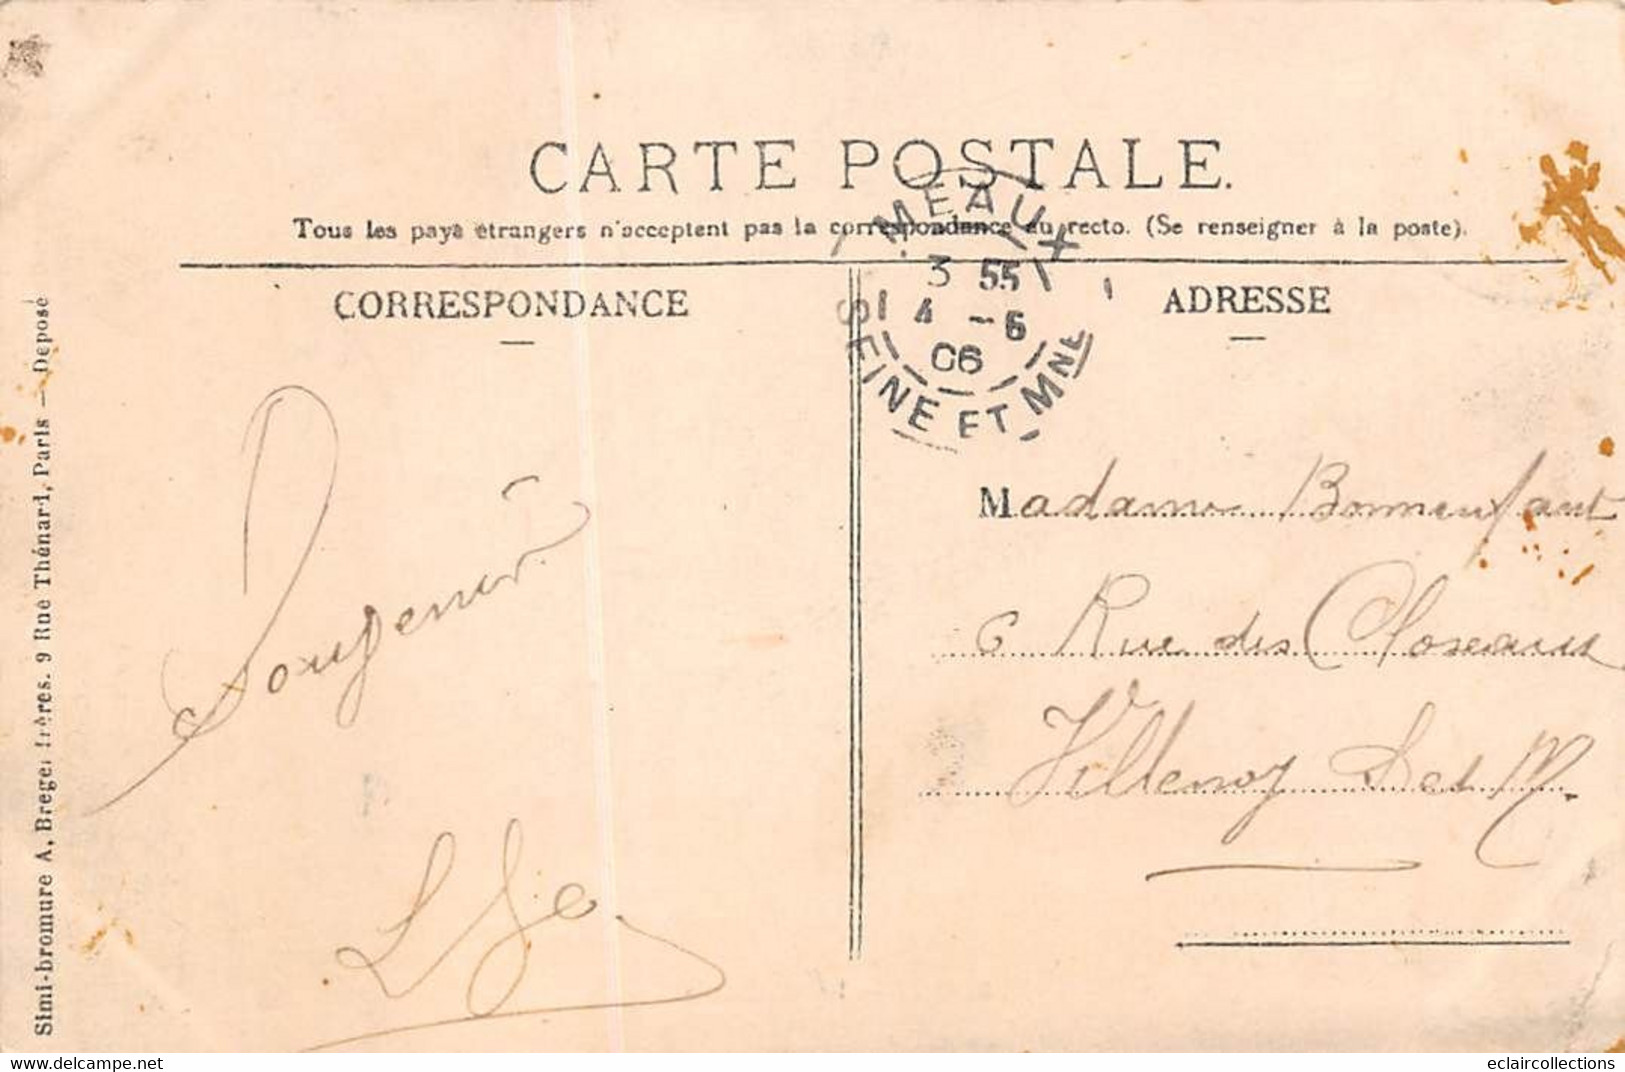 CARTE POSTALE.
Tous les pays étrangers n'acceptent pas la correspondance au recto. (Se renseigner à la poste).
CORRESPONDANCE
ADRESSE
MEAUX
3 55
4 - 6
06
SEINE ET MNE
Souvenir
Madame Bonnenfant
6 Rue des Closeaux
Villenoy S et M.
Simi-bromure A. Breger frères. 9 Rue Thénard, Paris — Déposé
www.delcampe.net
eclaircollections